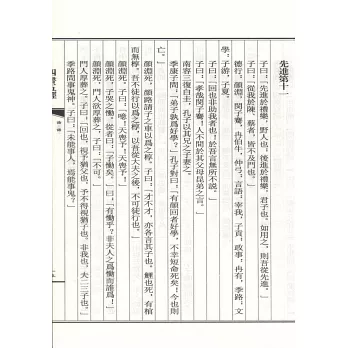 先進第十一
子曰：「先進於禮樂，野人也；後進於禮樂，君子也。如用之，則吾從先進。」
子曰：「從我於陳、蔡者，皆不及門也。」
德行：顏淵，閔子騫，冉伯牛，仲弓；言語：宰我，子貢；政事：冉有，季路；文
學：子游，子夏。
子曰：「回也非助我者也！於吾言無所不說。」
子曰：「孝哉閔子騫！人不間於其父母昆弟之言。」
南容三復白圭，孔子以其兄之子妻之。
季康子問：「弟子孰為好學？」孔子對曰：「有顏回者好學，不幸短命死矣！今也則
亡。」
顏淵死，顏路請子之車以為之椁。子曰：「才不才，亦各言其子也。鯉也死，有棺
而無椁。吾不徒行以為之椁，以吾從大夫之後，不可徒行也。」
顏淵死，子曰：「噫！天喪予！天喪予！」
顏淵死，子哭之慟。從者曰：「子慟矣。」曰：「有慟乎？非夫人之為慟而誰為！」
顏淵死，門人欲厚葬之，子曰：「不可。」
門人厚葬之。子曰：「回也，視予猶父也，予不得視猶子也。非我也，夫二三子也。」
季路問事鬼神。子曰：「未能事人，焉能事鬼？」